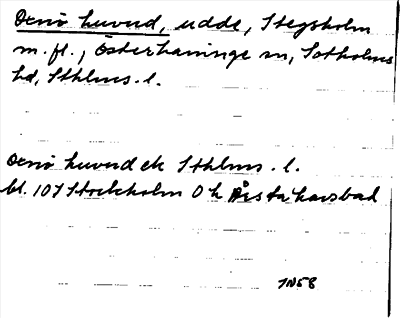 Ornö huvud, udde, Stegsholm
m.fl., Österhaninge sn, Sotholms
hd, Sthlms. l.
Ornö huvud ek Sthlms. l.
bl. 107 Stockholm O h Årsta havsbad
JN58